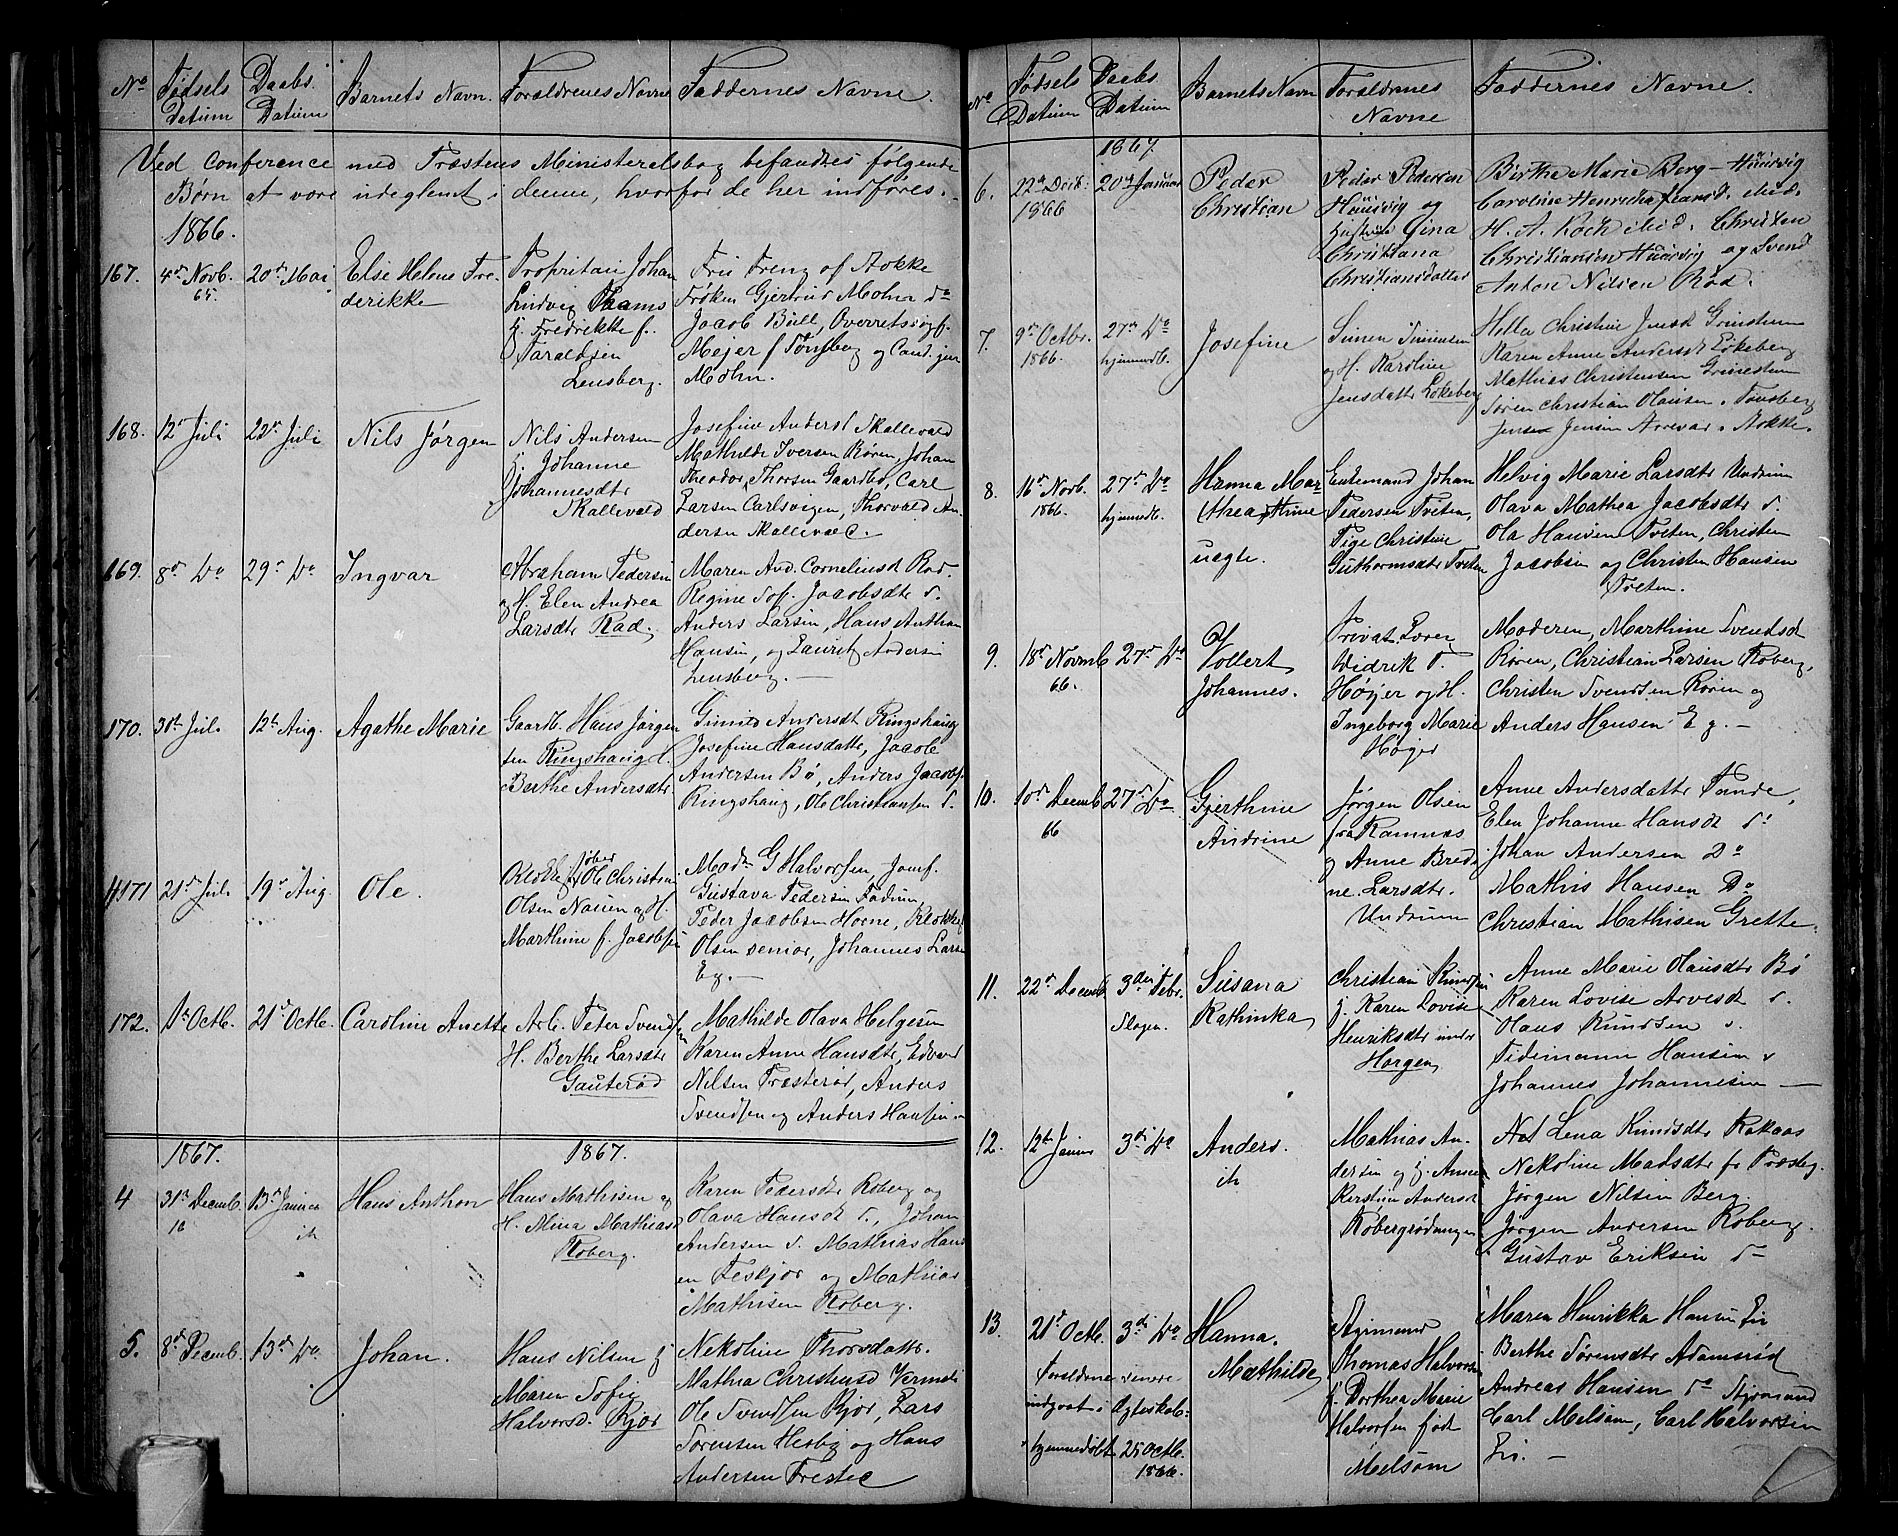 No
Fødsels
Datum
Daabs
Datum
Barnets Navn.
Foraldrenes Navne
Faddernes Navne.
Ved Conference med Præstens Ministerialsbog befandtes følgende
Børn at være udeglemt i denne, hvorfor de her indføres.
1866.
167.
4de Novb.
65.
20de Mai
Else Helene Fre-
derikke
Proprietair Johan
Ludvig Thaams
H. Fredrikke f.
Taraldsen
Lensberg.
Fru Treng af Aokke
Frøken Gjertrud Mohn do
Jacob Bull, Overretssagf.
Mejer f Tønsberg og Cand. jur
Mohn.
168.
12te Juli
22de Juli
Nils Jørgen
Nils Andersen
H. Johanne
Johannesdtr
Skallevold
Josefine Andersd Skallevold
Mathilde Iversen Røren, Johan
Theodor Thorsen Gaardbo, Carl
Larsen Carlsvigen, Thorvald An-
dersen Skallevold.
169.
8de Do
29de Do
Ingvar
Abraham Pedersen
og H. Elen Andrea
Larsdtr Rød.
Maren And. Corneliusd Rød.
Regine Sof. Jacobsdtr d.
Anders Larsen, Hans Anthon
Hansen, og Lauritz Andersen
Lensberg.
170.
31te Juli
12te Aug.
Agathe Marie
Gaardb. Hans Jørgen-
sen Ringshaug H.
Berthe Andersdtr
Andersdt Ringshaug
Josefine Hansdatter, Jacob
Andersen Bø, Anders Jacobs.
Ringshaug, Ole Christiansen d.
171
21de Juli
19de Aug.
Ole.
Ole Christian
Olsen Nauen og H.
Marthine f. Jacobsen
Mad. G Halvorsen, Jomf.
Gustava Pedersen Fadum,
Peder Jacobsen Horne, Klokker
Olsen senior, Johannes Larsen
Eg.
172.
1ste Octb.
21de Octb.
Caroline Anette
Arb. Peter Svendsen
H. Berthe Larsdtr
Gauterød
Mathilde Olava Helgesen
Karen Anne Hansdtr, Edvard
Nilsen Præsterød, Anders
Svendsen og Anders Hansen
1867.
1867.
4
31te Decemb.
13de Januar
Hans Anthon
Hans Mathisen og
H. Mina Mathiasd
Roberg.
Karen Pedersdtr Roberg og
Olava Hansdt d., Johan
Andersen d. Mathias Hans
en Feskjær og Mathias
Mathisen Roberg.
5.
8de Decemb.
13de Do
Johan.
Hans Nilsen H
Maren Sofie
Halvorsd. Kjær
Nekoline Thorsdatter.
Mathea Christensd Vermeli
Ole Svendsen Kjær, Lars
Sørensen Hesby og Hans
Andersen Træstie
No
Fødsels
Datum
Daabs
Datum
Barnets Navn
Foraldrenes
Navne
Faddernes Navne.
1867.
6.
22de Decb.
1866
20de Januar
Peder
Christian
Peder Pedersen
Huusvig og
Hustrue Gina
Christiana
Christiansdatter
Birthe Marie Berg - Huusvig
Caroline Henrikke Hansd.
H. A. Koch . Christen
Christiansen Huusvig og Svend
Anton Nilsen Rød.
7.
9de Octbr.
1866.
27de Do
hjemmedb.
Josefine
Simen Simensen
og H. Karoline
Jensdatter Eskeberg
Helle Christine Jensd Grimestum
Karen Anne Andersdt Eskeberg
Mathias Christensen Grimestum
Søren Christian Olausen. Tønsberg
Jensen Aarevar. Aokke.
8.
16de Novb.
1866.
27de Do
hjemmedb.
Hanna Mar
thea thrine
uægte.
Enkemand Johan
Pedersen Tveten,
Pige Christine
Guthormsdtr Tveten
Helvig Marie Larsdtr Undrum
Olava Mathea Jacobsdtr d.
Ola Hansen Tveten, Christen
Jacobsen og Christen Hansen
Tveten.
9.
18de Novmb
66.
27de Do
Vollert
Johannes.
Privat Lærer
Didrik P.
Høyer og H.
Ingeborg Marie
Høyer
Moderen, Marthine Svendsd
Røren, Christian Larsen Roberg,
Christen Svendsen Røren og
Anders Hansen Eg.
10.
10de Decemb
66
27de Do
Gjerthine
Andrine
Jørgen Olsen
fra Ramnæs
og Anne Bredi
ne Larsdtr.
Undrum
Anne Andersdatter Sande,
Elen Johanne Hansdt do
Johan Andersen Do
Mathis Hansen Do
Christian Mathisen Grette.
11.
22de Decemb
3die Febr.
Slagen.
Susana
Kathinka
Christian Knudsen
H. Karen Lovise
Henriksdtr under
Horgen
Anne Marie Olausdtr Bø
Karen Lovise Arvesdt d.
Olaus Knudsen d.
Tidemann Hansen d
Johannes Johannesen
12.
12te Januar
3die Do
Anders.
Mathias An-
dersen og H. Anne
Kerstine Andersd
Robergrødningen
Lena Knudsdtr Rakaas
Nekoline Madsdtr fr Præsteg.
Jørgen Nilsen Berg.
Jørgen Andersen Roberg.
Gustav Eriksen do
13.
21de Octb.
3die Do
Foraldrene senere
indgaat i Ægteskab.
hjemmedøbt 25 Octb.
1866.
Hanna.
Mathilde
Thomas Halvorsen
H. Dorthea Marie
Halvorsen født
Melsom
Maren Henrikke Hansen
Berthe Sørensdtr Adamsrød
Andreas Hansen do Styrmand
Carl Melsom, Carl Halvorsen